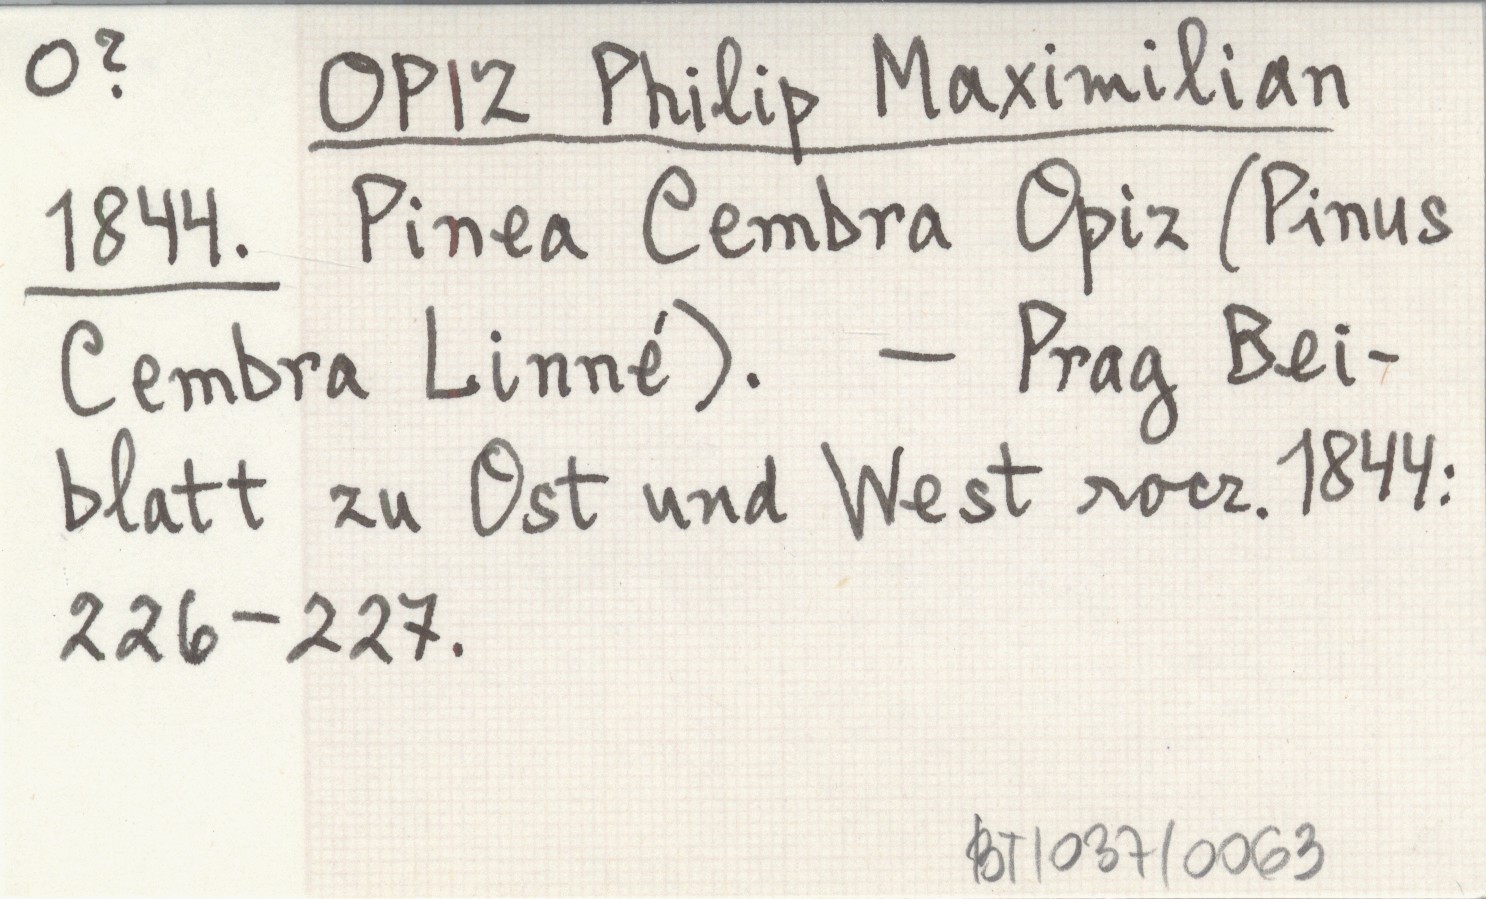 O? OPIZ Philip Maximilian
1844. Pinea Cembra Opiz (Pinus
Cembra Linné). — Prag Bei-
blatt zu Ost und West rocz. 1844:
226-227.
BT/037/0063